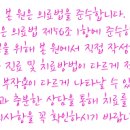 본 원은 의료법을 준수합니다.
본 원은 의료법 제56조 1항에 준수하
을 위해 본 원에서 직접 작성
진료 및 치료방법이 다르게 적
부작용이 다르게 나타날 수 있
과 충분한 상담을 통해 치료를
의사항을 꼭 확인하시기 바랍니